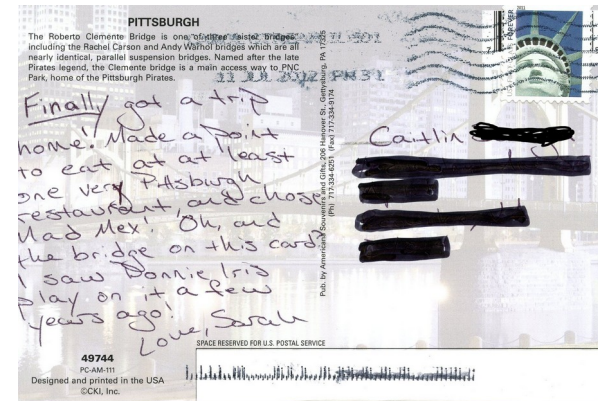 PITTSBURGH
The Roberto Clemente Bridge is one of three sister bridges,
including the Rachel Carson and Andy Warhol bridges which are all
nearly identical, parallel suspension bridges. Named after the late
Pirates legend, the Clemente bridge is a main access way to PNC
Park, home of the Pittsburgh Pirates.
11 JUL 2012 PM 3 L
FOREVER
Finally got a trip
home! Made a point
to eat at at least
one very Pittsburgh
restaurant, and chose
Mad Mex! Oh, and
the bridge on this card
I saw Donnie Iris
play on it a few
years ago!
Love, Sarah
Pub. by Americana Souvenirs and Gifts, 206 Hanover St., Gettysburg, PA 17325
(Ph) 717-334-6251 (Fax) 717-334-9174
Caitlin
SPACE RESERVED FOR U.S. POSTAL SERVICE
49744
PC-AM-111
Designed and printed in the USA
©CKI, Inc.